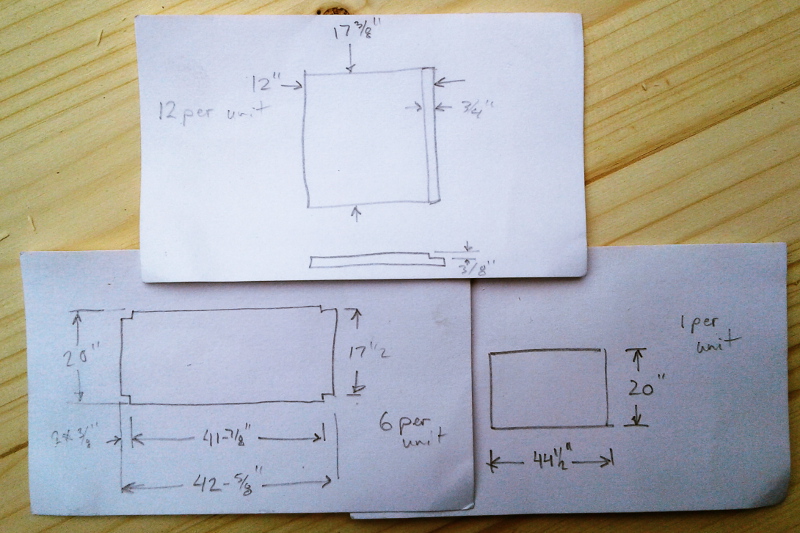 17 3/8"
12"
12 per unit
3/4"
3/8"
20"
17 1/2
3/8"
41-7/8"
42-5/8"
6 per
unit
1 per
unit
20"
44 1/2"